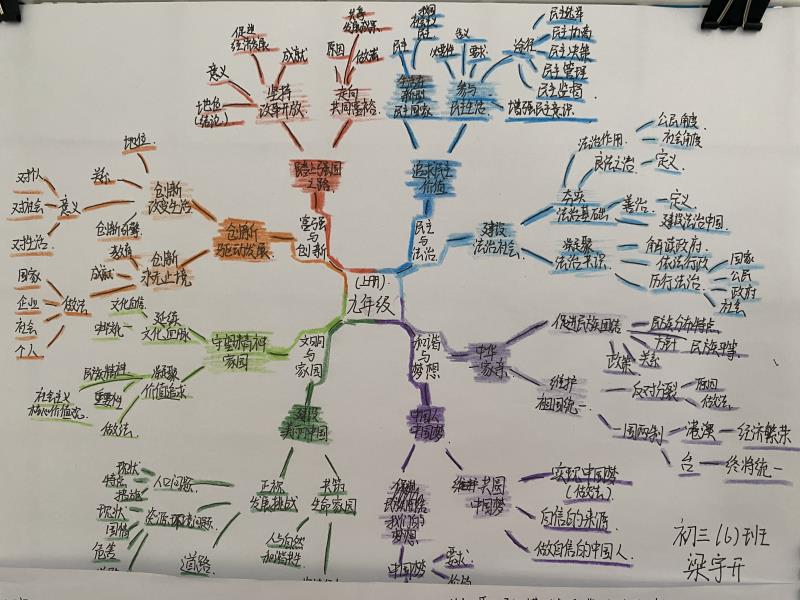 九年级
(上册)
富强
与
创新
踏上强国
之路
坚持
改革开放
促进
经济发展
成就
意义
地位
走向
共同富裕
原因
做法
共享
发展成果
创新
驱动发展
创新
改变生活
地位
关系
意义
对人
对社会
创新
永无止境
教育
成就
做法
国家
企业
社会
个人
民主
与
法治
追求民主
价值
新型
民主国家
民主
参与
民主生活
意义
要求
途径
民主选举
民主协商
民主决策
民主管理
民主监督
增强民主意识
建设
法治社会
夯实
法治基础
法治作用
公民角度
社会角度
良法之治
定义
善治
定义
建设法治中国
凝聚
法治共识
依法行政
厉行法治
国家
公民
政府
社会
文明
与
家园
守望精神
家园
延续
文化血脉
文化自信
凝聚
价值追求
民族精神
重要性
社会主义
核心价值观
做法
建设
美丽中国
正视
发展挑战
人口问题
现状
特点
资源环境问题
现状
国情
危害
道路
共筑
生命家园
人与自然
和谐共生
和谐
与
梦想
中华
一家亲
促进民族团结
民族分布特点
方针
民族平等
政策
关系
维护
祖国统一
反对分裂
原因
做法
一国两制
港澳
经济繁荣
台
终将统一
中国人
中国梦
我们的
梦想
中国梦
要求
共圆
中国梦
实现中国梦
(做法)
自信的来源
做自信的中国人
初三(6)班
梁宇开